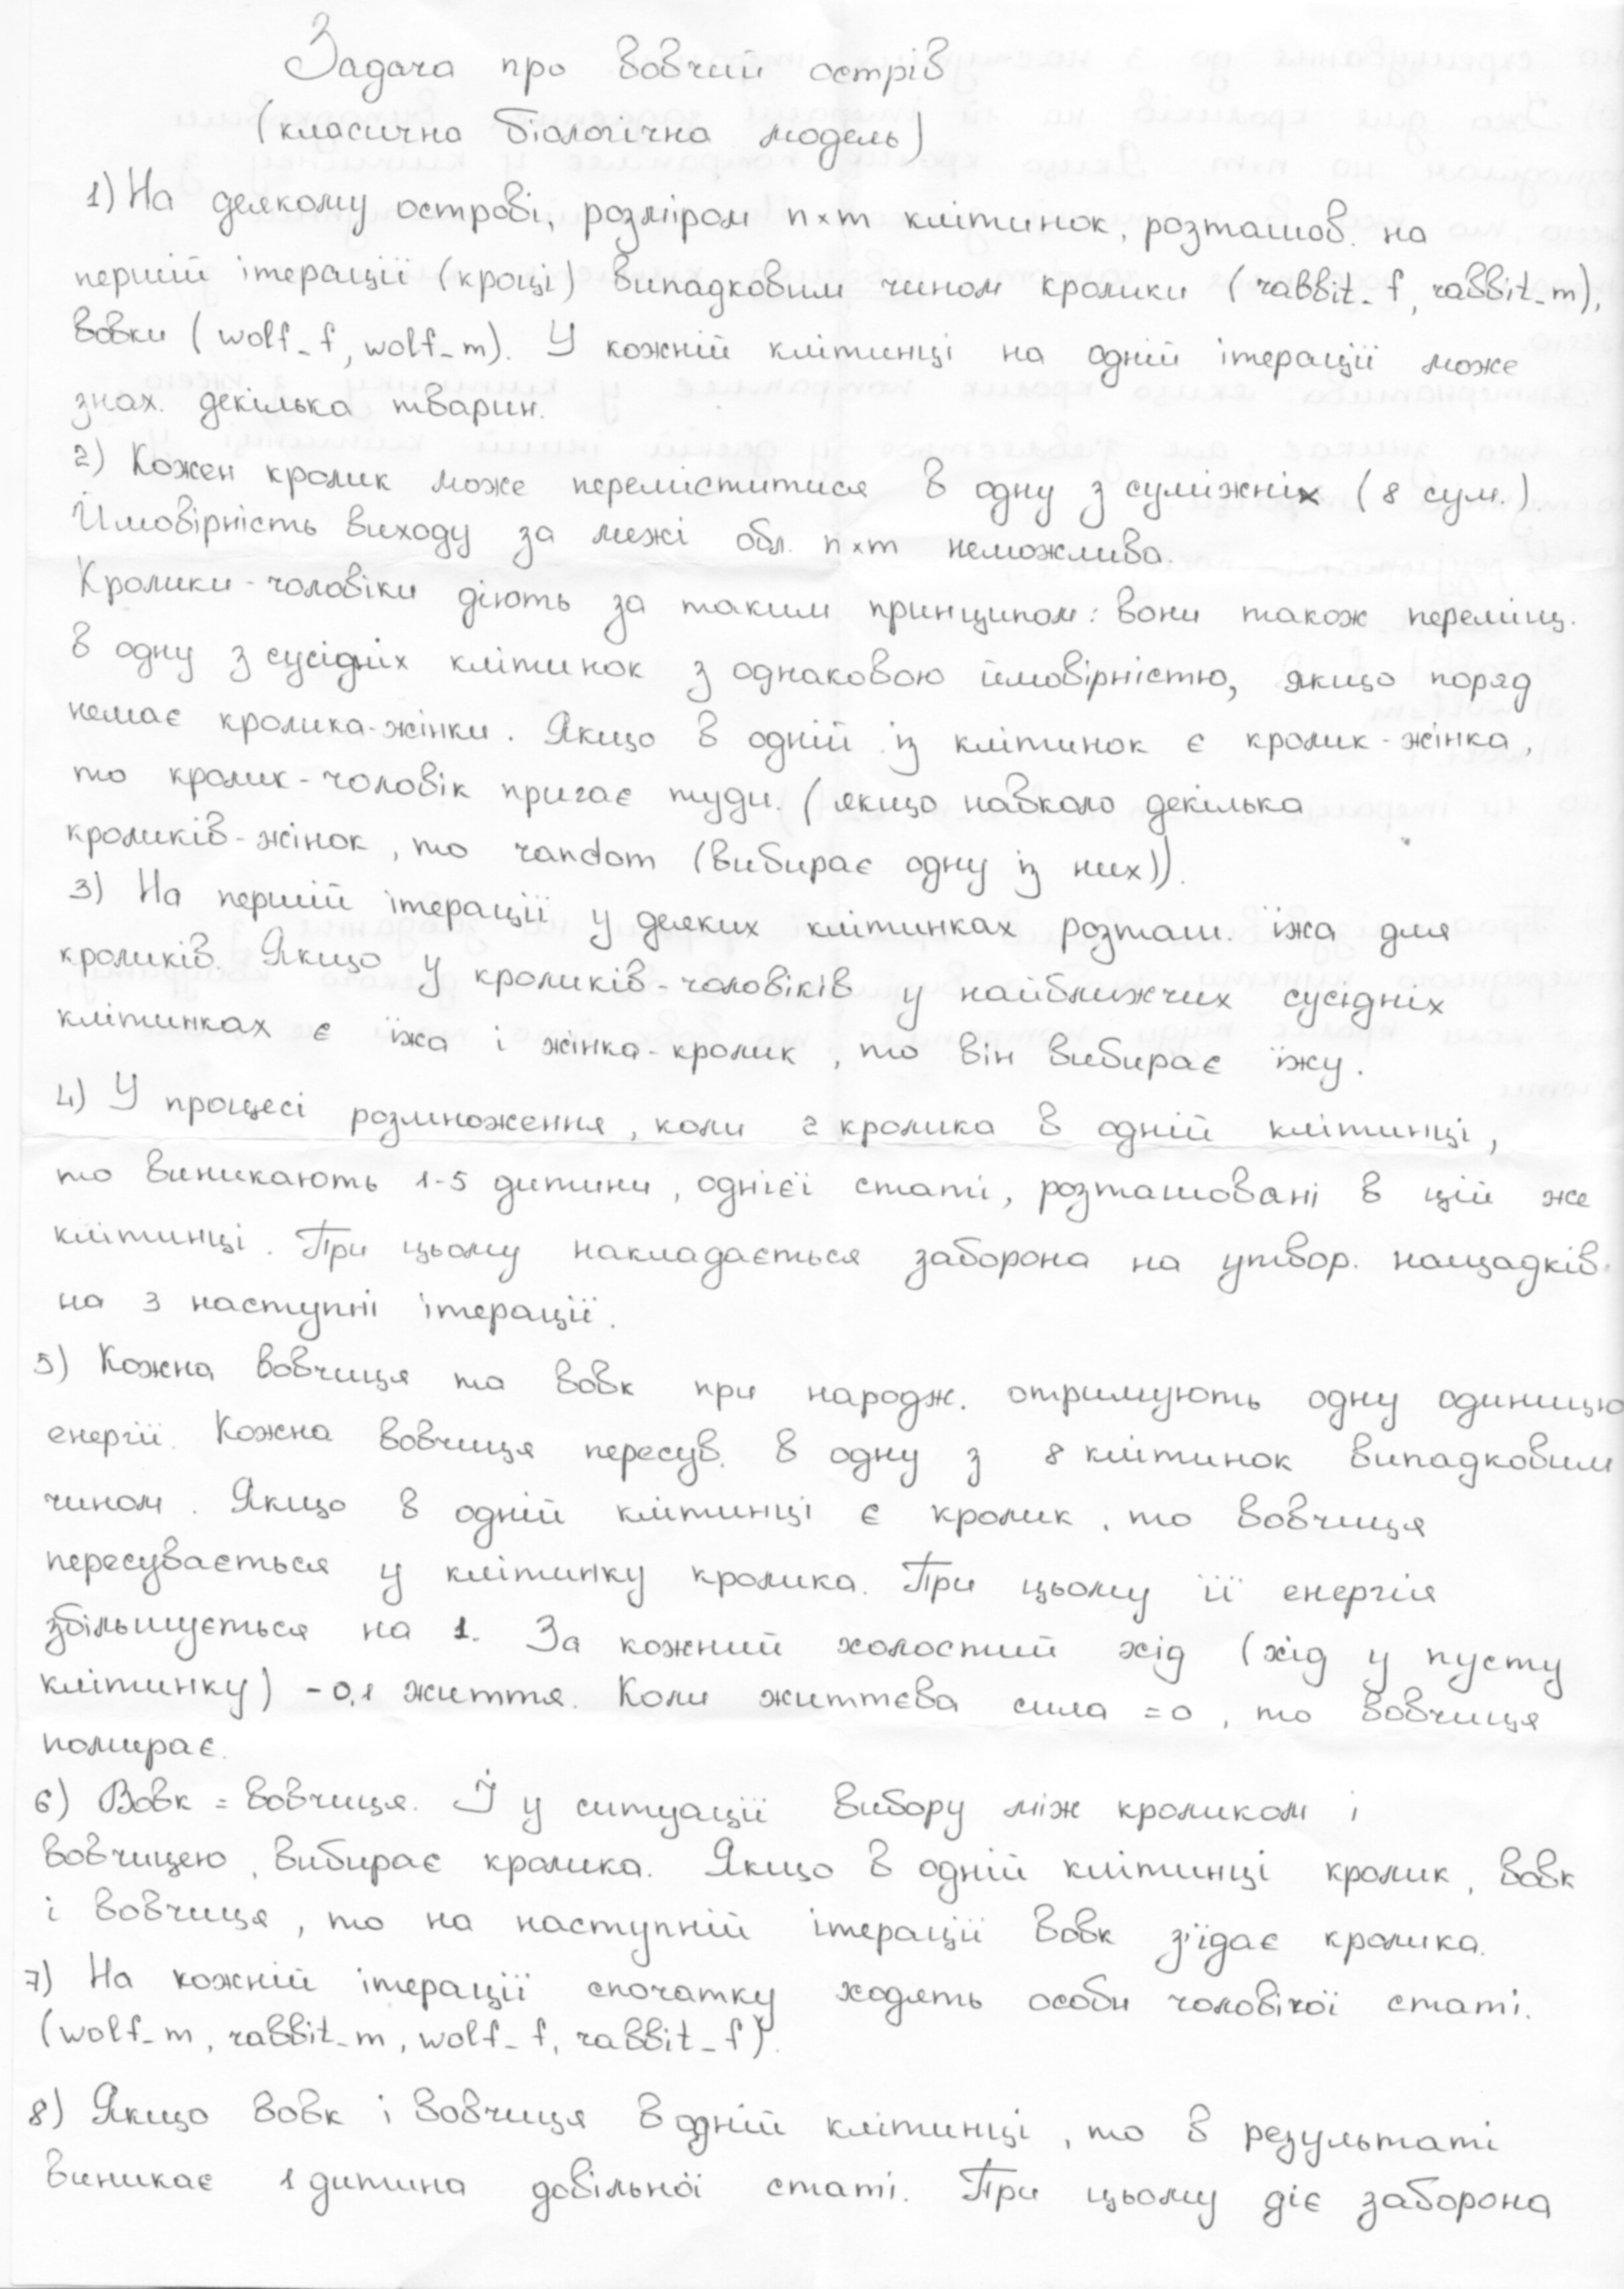 Задача про вовчий острів
(класична біологічна модель)
1) На деякому острові, розміром n×m клітинок, розташов. на
першій ітерації (кроці) випадковим чином кролики (rabbit_f, rabbit_m),
вовки (wolf_f, wolf_m). У кожній клітинці на одній ітерації може
знах. декілька тварин.
2) Кожен кролик може переміститися в одну з суміжніх (8 сум.).
Ймовірність виходу за межі обл. n×m неможлива.
Кролики-чоловіки діють за таким принципом: вони також переміщ.
в одну з сусідніх клітинок з однаковою ймовірністю, якщо поряд
немає кролика-жінки. Якщо в одній із клітинок є кролик-жінка,
то кролик-чоловік пригає туди. (якщо навколо декілька
кроликів-жінок, то random (вибирає одну із них)).
3) На першій ітерації у деяких клітинках розташ. їжа для
кроликів. Якщо у кроликів-чоловіків у найближчих сусідніх
клітинках є їжа і жінка-кролик, то він вибирає їжу.
4) У процесі розмноження, коли 2 кролика в одній клітинці,
то виникають 1-5 дитини, однієї статі, розташовані в цій же
клітинці. При цьому накладається заборона на утвор. нащадків
на 3 наступні ітерації.
5) Кожна вовчиця та вовк при народж. отримують одну одиницю
енергії. Кожна вовчиця пересув. в одну з 8 клітинок випадковим
чином. Якщо в одній клітинці є кролик, то вовчиця
пересувається у клітинку кролика. При цьому її енергія
збільшується на 1. За кожний холостий хід (хід у пусту
клітинку) -0,1 життя. Коли життєва сила =0, то вовчиця
помирає.
6) Вовк = вовчиця. Й у ситуації вибору між кроликом і
вовчицею, вибирає кролика. Якщо в одній клітинці кролик, вовк
і вовчиця, то на наступній ітерації вовк з'їдає кролика.
7) На кожній ітерації спочатку ходять особи чоловічої статі.
(wolf_m, rabbit_m, wolf_f, rabbit_f).
8) Якщо вовк і вовчиця в одній клітинці, то в результаті
виникає 1 дитина довільної статі. При цьому діє заборона